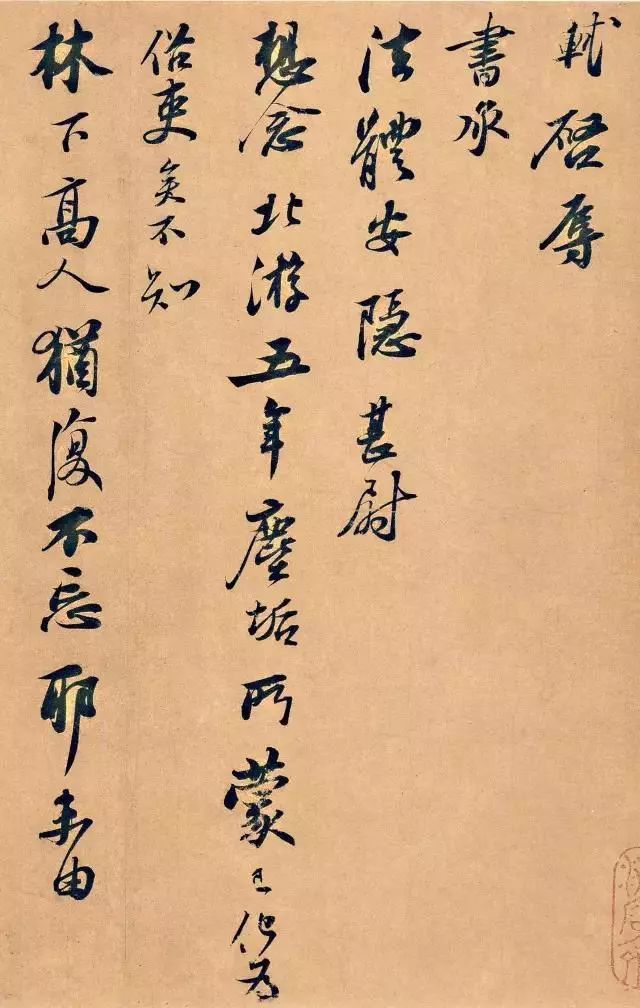 軾啓辱
書承
法體安隱甚尉
想念北游五年塵垢所蒙已化爲
俗吏矣不知
林下高人猶復不忘耶未由